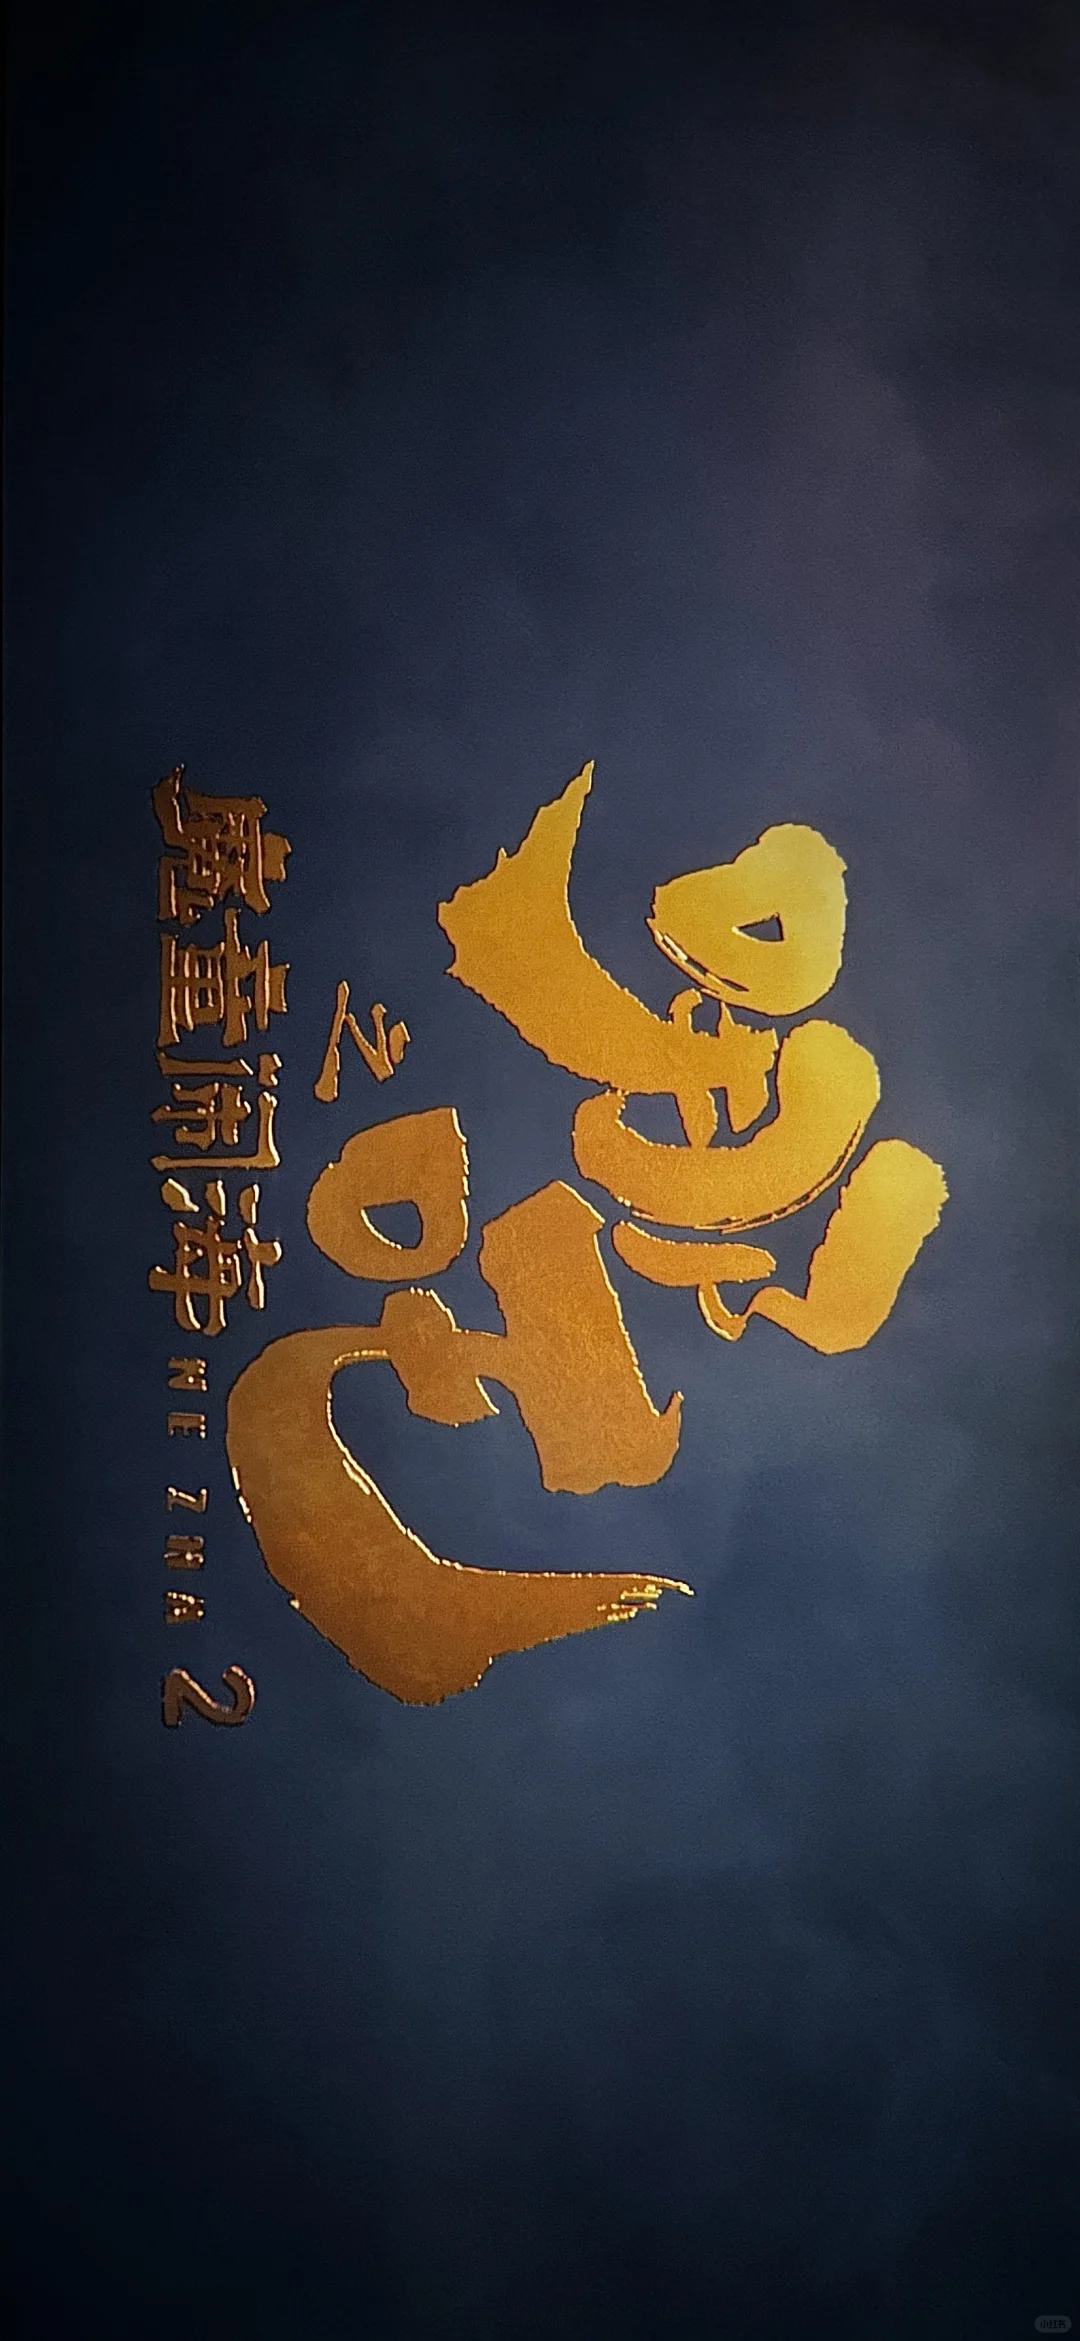 哪吒
之
魔童闹海 NE ZHA 2
小红书